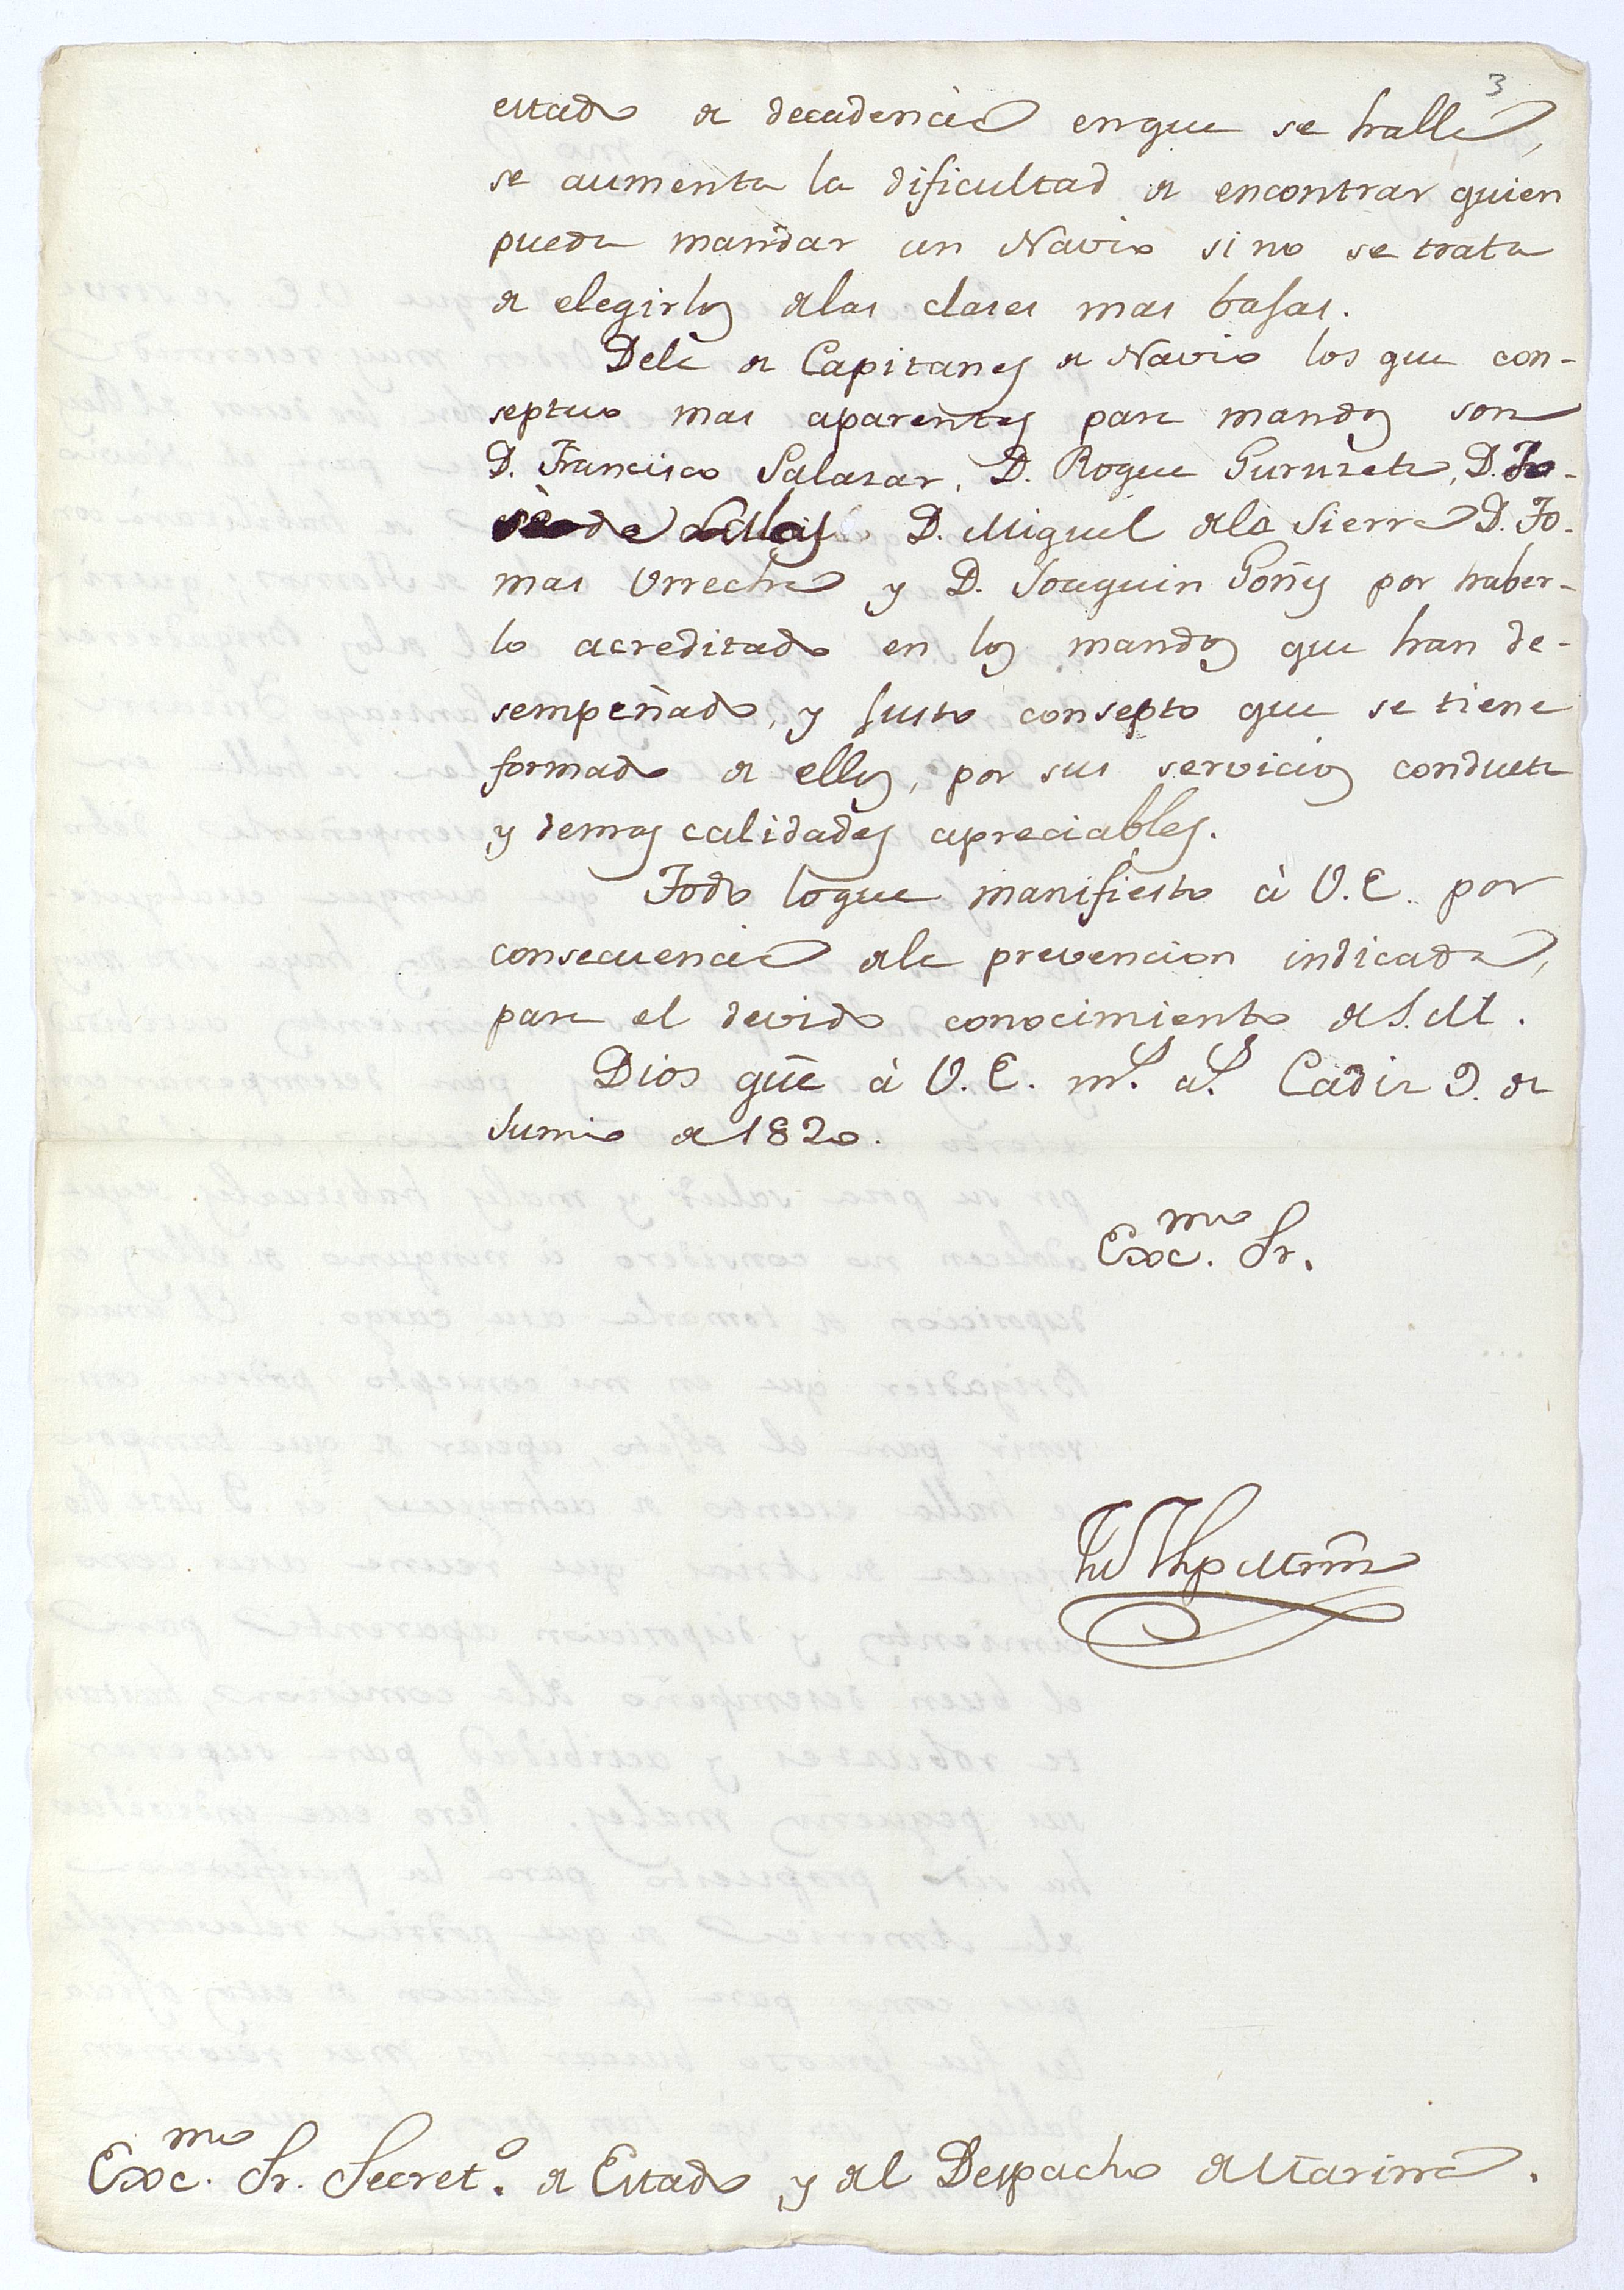 3
estado de decadencia en que se halla,
se aumenta la dificultad de encontrar quien
pueda mandar un Navio si no se trata
de elegirlos delas clases mas bajas.
Dela de Capitanes de Navio los que con-
septuo mas aparentes para mandos son
D. Francisco Salazar, D. Roque Guruzeta, D. Jo-
sè de D. Miguel dela Sierra D. To-
mas Urrecha y D. Joaquin Goñy por haber-
lo acreditado en los mandos que han de-
sempeñado, y justo consepto que se tiene
formado de ellos, por sus servicios conducta
y demas calidades apreciables.
Todo loque manifiesto à V.E. por
consecuencia dela prevencion indicada,
para el devido conocimiento de S.M.
Dios gũe à V.E. m.s a.s Cadiz 9. de
Junio de 1820.
Exc.mo Sr.
Exc.mo Sr. Secret.o de Estado y del Despacho de Marina.